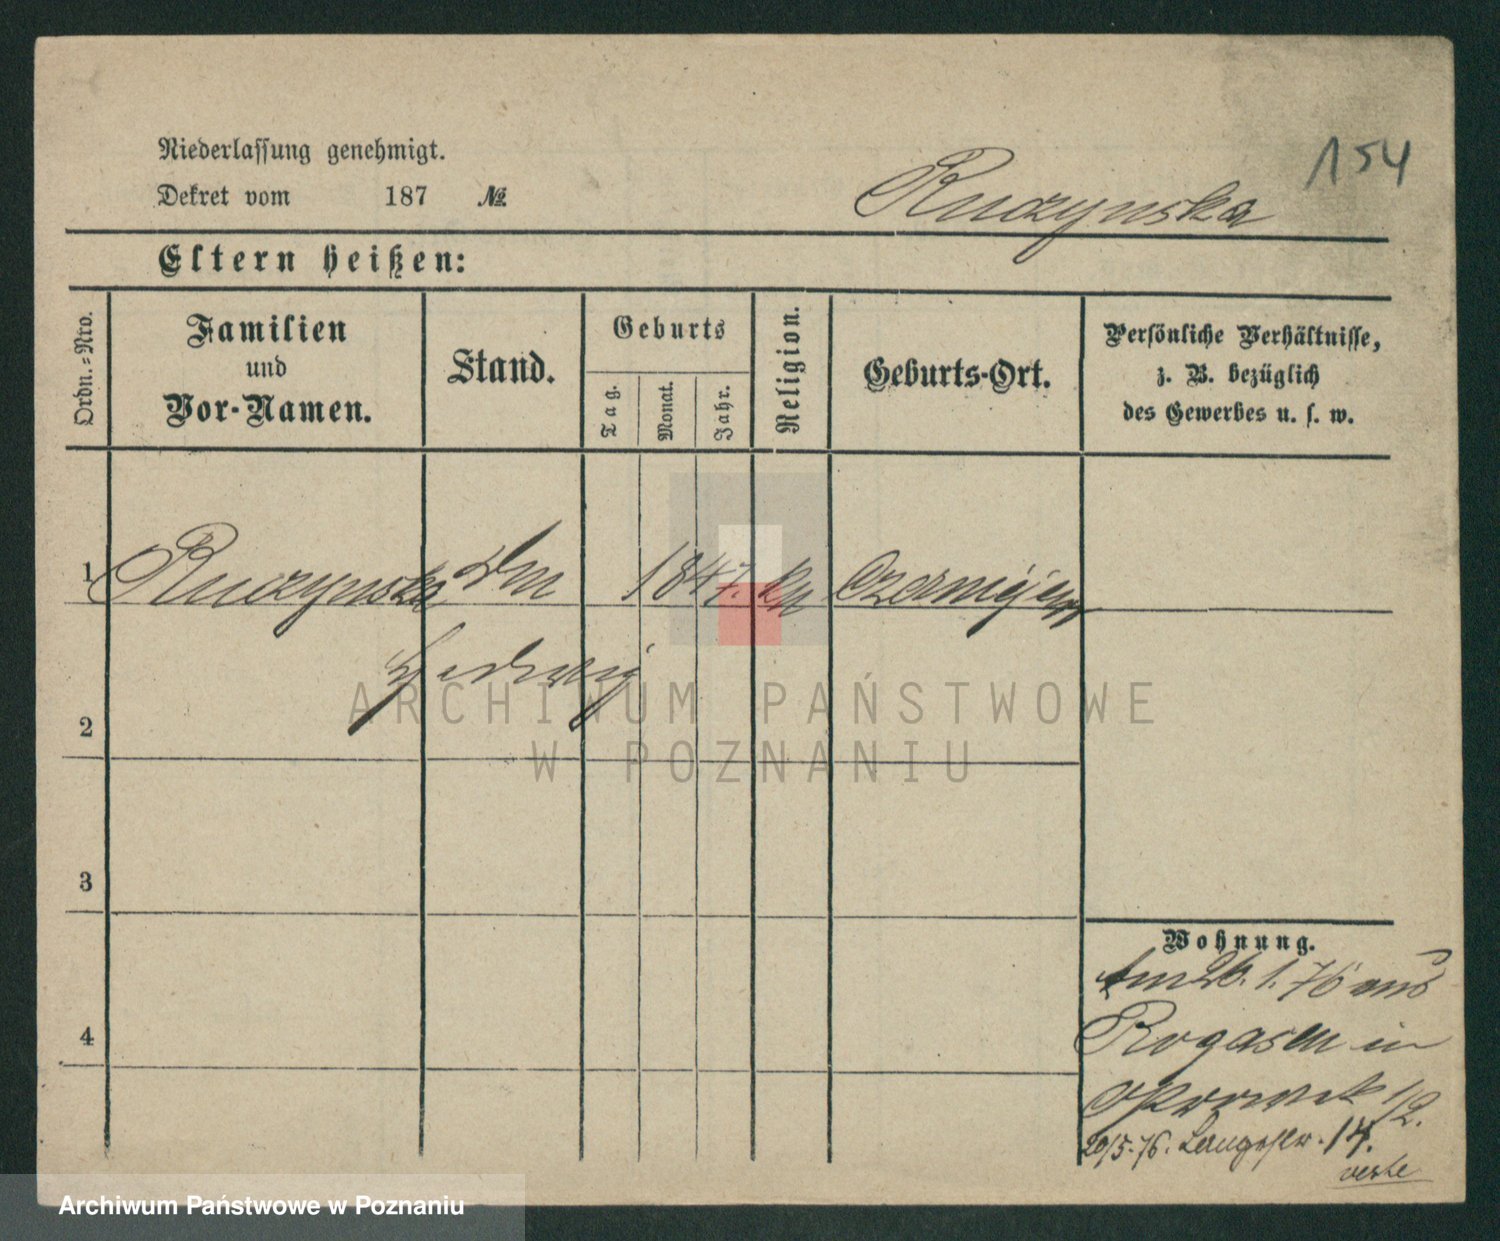 154
Niederlassung genehmigt.
Dekret vom 187 №
Ruczynska
Eltern heißen:
Ordn.-Nro.
Familien
und
Vor-Namen.
Stand.
Geburts
Tag.
Monat.
Jahr.
Religion.
Geburts-Ort.
Persönliche Verhältnisse,
z. B. bezüglich
des Gewerbes u. s. w.
1 Ruczynska 1847.
Hedwig
2
3
4
Wohnung.
Am 26. 1. 76 aus
Rogasen in
1/2.
20/5. 76. Langestr. 14.
ARCHIWUM PAŃSTWOWE
W POZNANIU
Archiwum Państwowe w Poznaniu